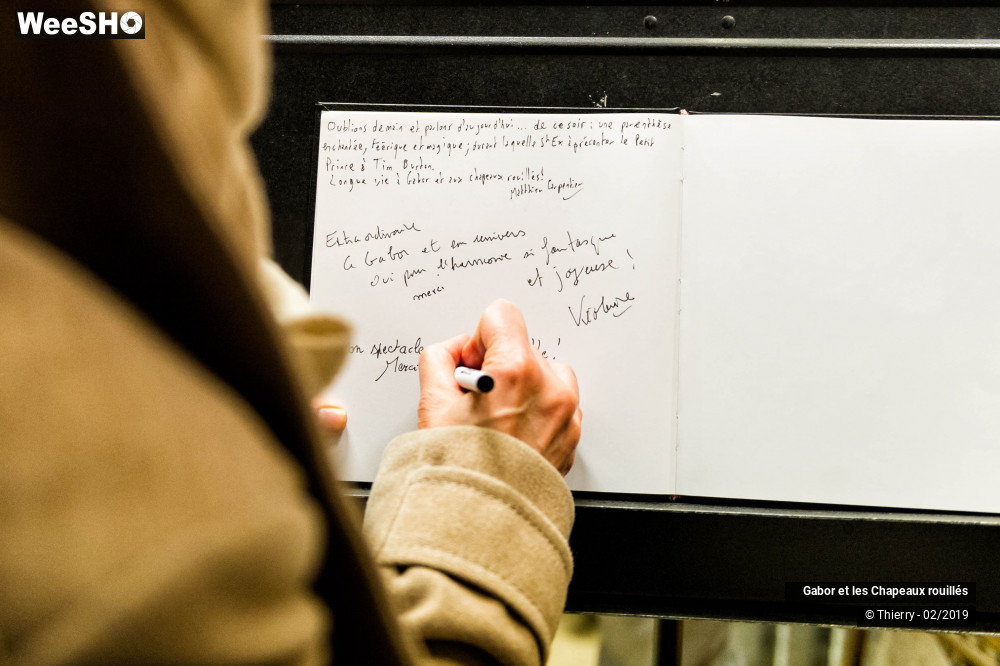 WeeSHO
Oublions demain et parlons d'aujourd'hui... de ce soir : une parenthèse
enchantée, féérique et magique ; durant laquelle St Ex à présenter le Petit
Prince à Tim Burton.
Longue vie à Gabor et aux chapeaux rouillés!
Matthieu Carpentier
Extraordinaire
Ce Gabor et en univers
Oui pour l'harmonie si fantasque
et joyeuse !
merci
Violaine
on spectacle !
Merci
Gabor et les Chapeaux rouillés
© Thierry - 02/2019